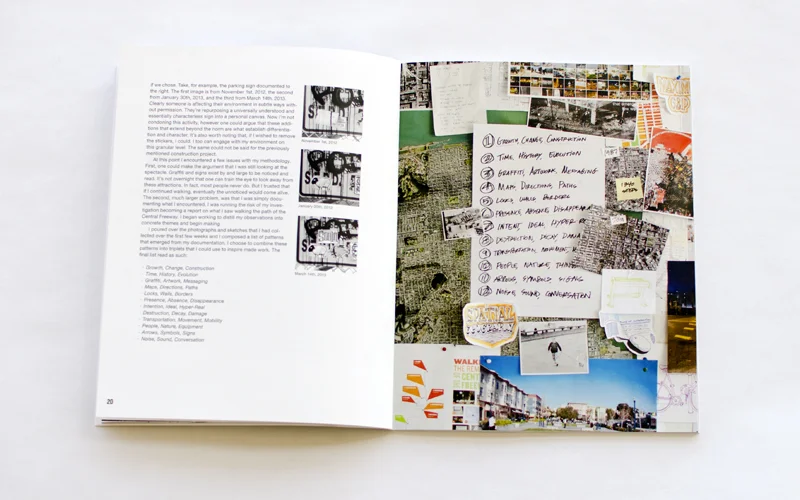 if we chose. Take, for example, the parking sign documented to
the right. The first image is from November 1st, 2012, the second
from January 30th, 2013, and the third from March 14th, 2013.
Clearly someone is affecting their environment in subtle ways with-
out permission. They're repurposing a universally understood and
essentially characterless sign into a personal canvas. Now, I'm not
condoning this activity, however one could argue that these addi-
tions that extend beyond the room are what establish differentia-
tion and character. It's also worth noting that, if I wished to remove
the stickers, I could. I too can engage with my environment on
this granular level. The same could not be said for the previously
mentioned construction project.
At this point I encountered a few issues with my methodology.
First, one could make the argument that I was still looking at the
spectacle. Graffiti and signs exist by and large to be noticed and
read. It's not overnight that one can train the eye to look away from
these attractions. In fact, most people never do. But I trusted that
if I continued walking, eventually the unnoticed would come alive.
The second, much larger problem, was that I was simply docu-
menting what I encountered. I was running the risk of my inves-
tigation becoming a report on what I saw walking the path of the
Central Freeway. I began working to distill my observations into
concrete themes and begin making.
I poured over the photographs and sketches that I had col-
lected over the first few weeks and I composed a list of patterns
that emerged from my documentation. I choose to combine these
patterns into triplets that I could use to inspire made work. The
final list read as such:
- Growth, Change, Construction
- Time, History, Evolution
- Graffiti, Artwork, Messaging
- Maps, Directions, Paths
- Locks, Walls, Borders
- Presence, Absence, Disappearance
- Intention, Ideal, Hyper-Real
- Destruction, Decay, Damage
- Transportation, Movement, Mobility
- People, Nature, Equipment
- Arrows, Symbols, Signs
- Noise, Sound, Conversation
20
November 1st, 2012
January 30th, 2013
March 14th, 2013
1 GROWTH, CHANGE, CONSTRUCTION
2 TIME, HISTORY, EVOLUTION
3 GRAFFITI, ARTWORK, MESSAGING
4 MAPS, DIRECTIONS, PATHS
5 LOCKS, WALLS, BORDERS
6 PRESENCE, ABSENCE, DISAPPEARA
7 INTENT, IDEAL, HYPER-RE
8 DESTRUCTION, DECAY, DAMA
9 TRANSPORTATION, MOVEMENT, M
10 PEOPLE, NATURE, THINGS
11 ARROWS, SYMBOLS, SIGNS
12 NOISE, SOUND, CONVERSATION
WALK